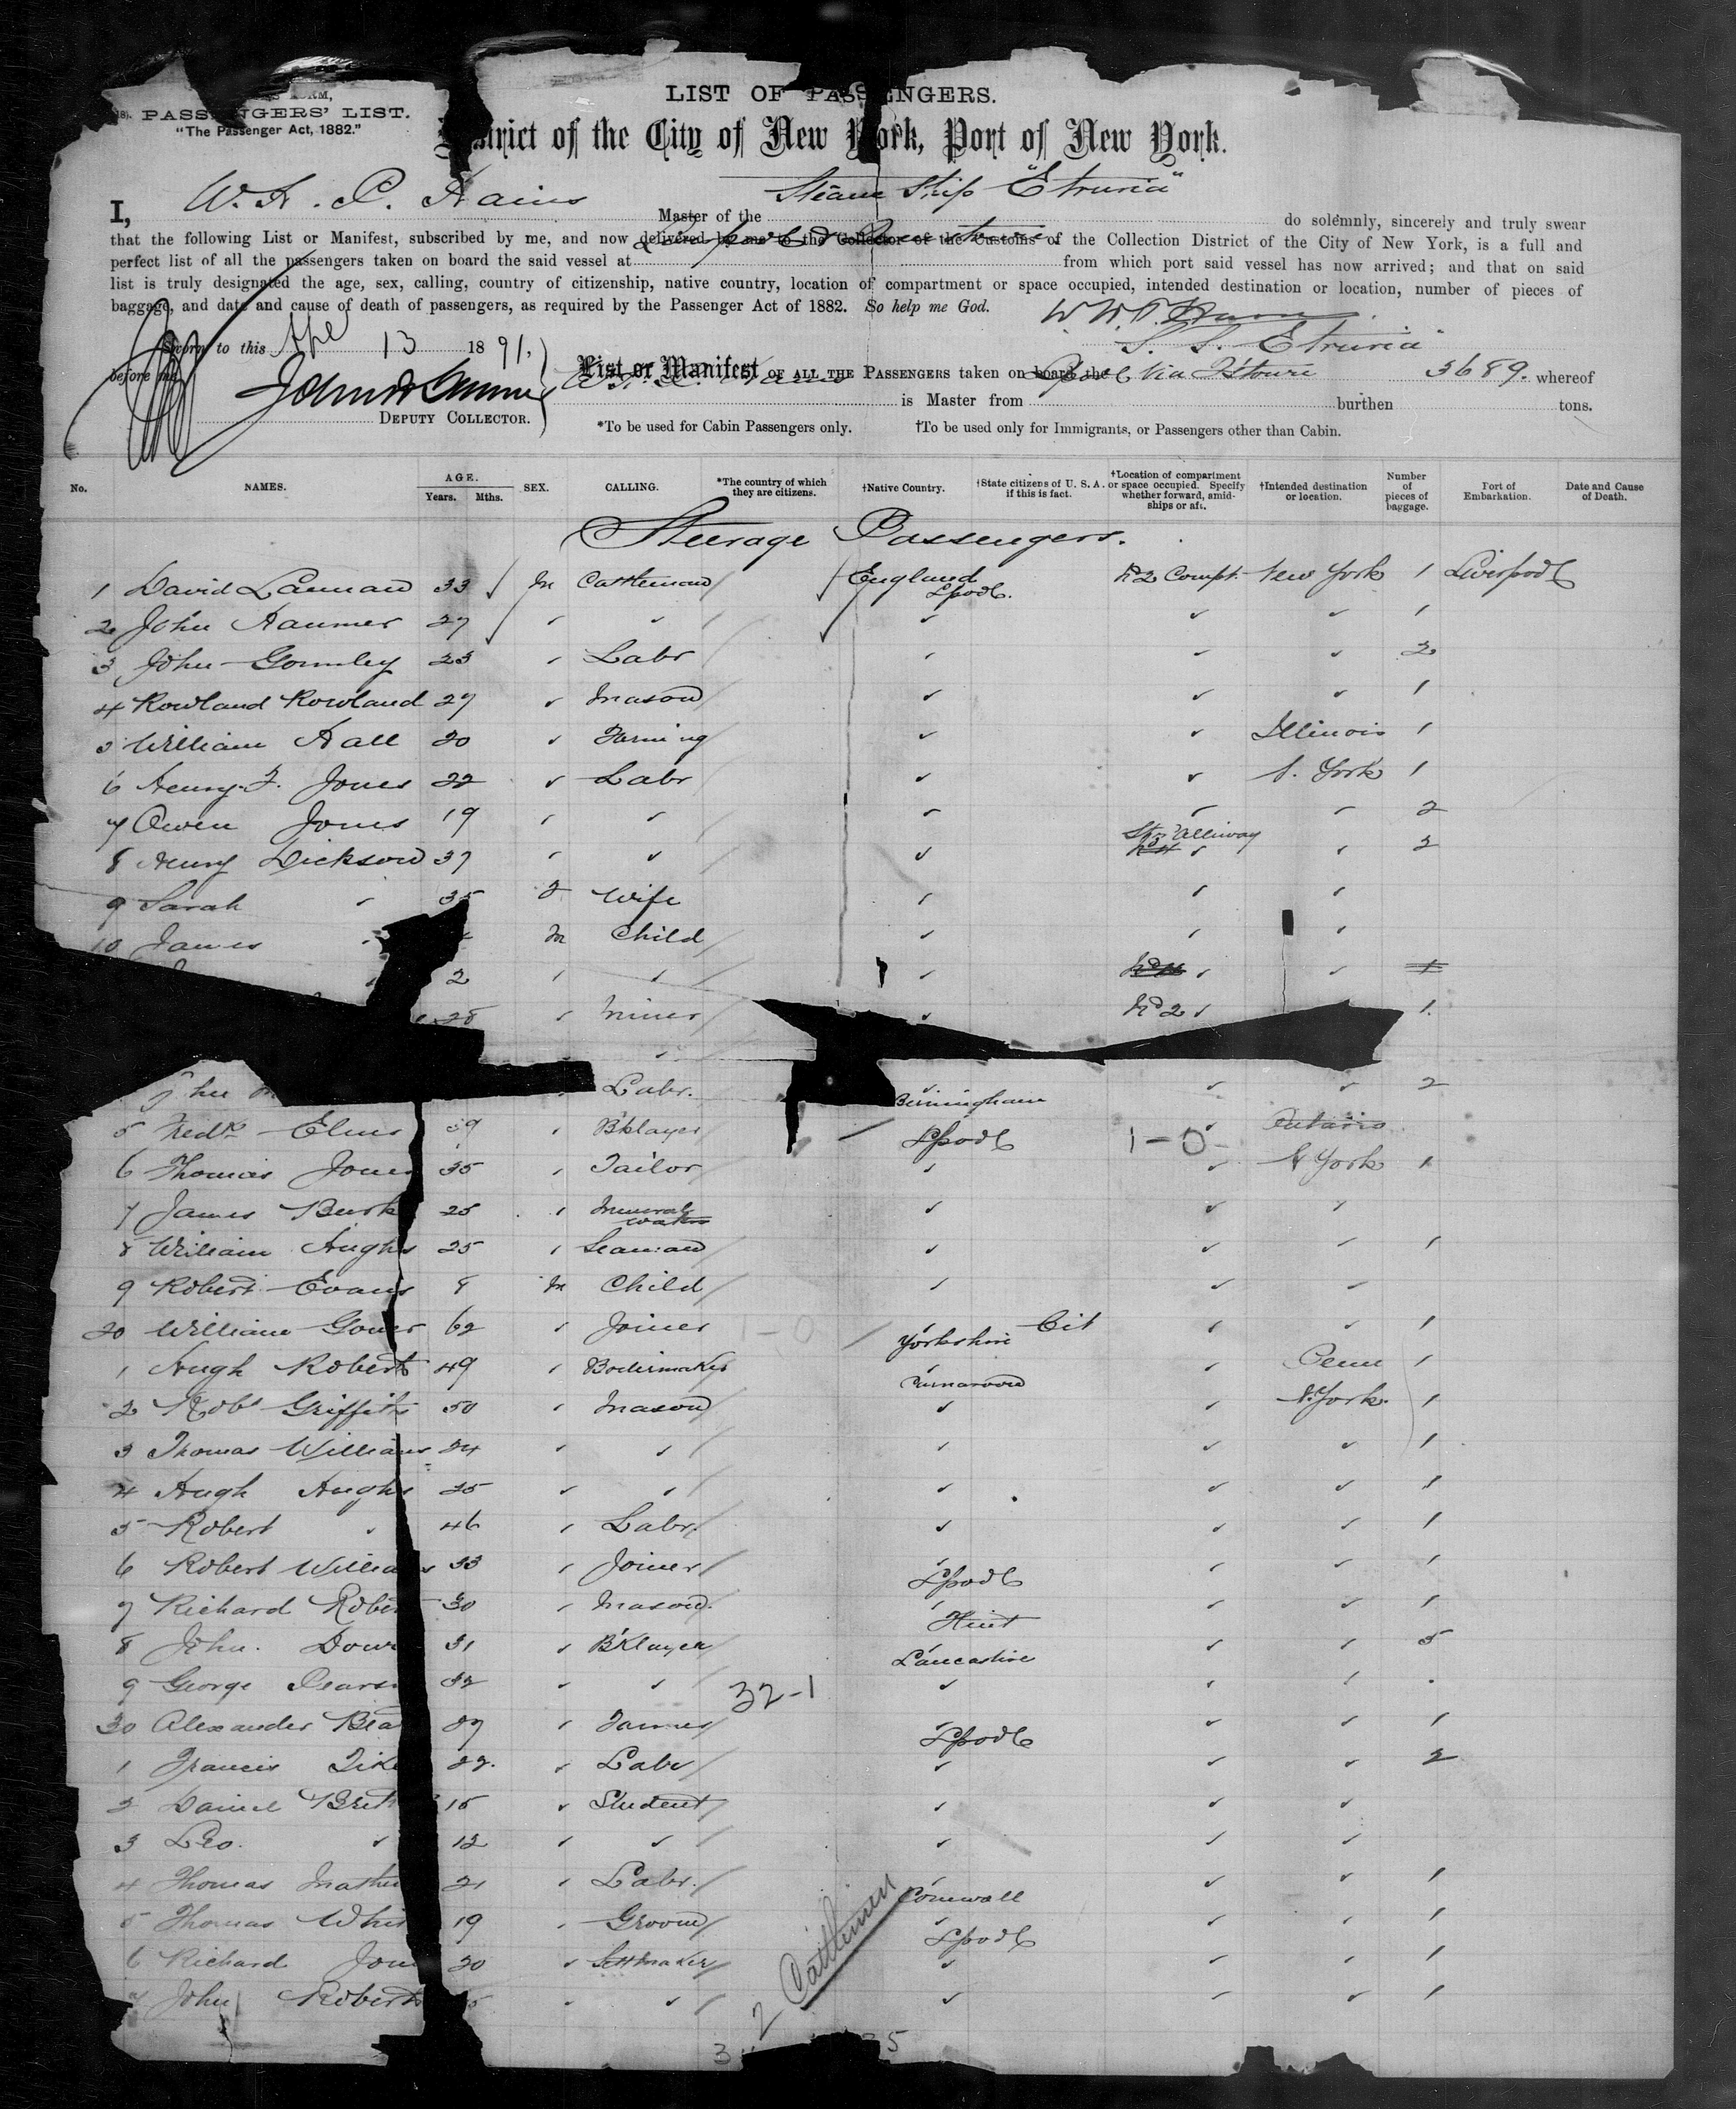 PASSENGERS' LIST.
"The Passenger Act, 1882."
LIST OF PASSENGERS.
District of the City of New York, Port of New York.
I, W. H. P. Hains Master of the Steam Ship "Etruria" do solemnly, sincerely and truly swear
that the following List or Manifest, subscribed by me, and now delivered by me to the Collector of the Customs of the Collection District of the City of New York, is a full and
perfect list of all the passengers taken on board the said vessel at from which port said vessel has now arrived; and that on said
list is truly designated the age, sex, calling, country of citizenship, native country, location of compartment or space occupied, intended destination or location, number of pieces of
baggage, and date and cause of death of passengers, as required by the Passenger Act of 1882. So help me God.
Sworn to this 13 1891.
before me
S. S. Etruria
List or Manifest OF ALL THE PASSENGERS taken on board the 3689. whereof
is Master from L'pool via burthen tons.
DEPUTY COLLECTOR.
*To be used for Cabin Passengers only. †To be used only for Immigrants, or Passengers other than Cabin.
No. NAMES. AGE. Years. Mths. SEX. CALLING. *The country of which they are citizens. †Native Country. †State citizens of U. S. A. if this is fact. †Location of compartment or space occupied. Specify whether forward, amidships or aft. †Intended destination or location. Number of pieces of baggage. Port of Embarkation. Date and Cause of Death.
Steerage Passengers.
1 David Lannan 33 M Cattleman England L'pool No 2 Compt. New York 1 Liverpool
2 John Hanmer 27 1
3 John Gormley 23 Labr 2
4 Rowland Rowland 27 Mason 1
5 William Hall 20 Farming Illinois 1
6 Henry Jones 22 Labr N. York 1
7 Owen Jones 19 2
8 Henry Dickson 37 2
9 Sarah 35 F Wife
10 James M Child
2 1
28 Miner No 2 1
Labr. 2
Birmingham
5 Fredk 39 B'klayer L'pool 1-0- Ontario
6 Thomas Jones 35 Tailor N York 1
7 James Burk 25 Mineral Waters
8 William Hughs 25 Seaman 1
9 Robert Evans 8 M Child
20 William 62 Joiner Yorkshire Cit 1
1 Hugh Roberts 49 Boilermaker Carnarvon Penn 1
2 Robt Griffiths 50 Mason N. York 1
3 Thomas Williams 24 1
4 Hugh Hughs 25 1
5 Robert 46 Labr. 1
6 Robert Williams 33 Joiner L'pool 1
7 Richard Rober 30 Mason Flint 1
8 John 31 B'klayer Lancashire 5
9 George Pears 32 32-1
30 Alexander Bea L'pool 1
1 Francis 22 Labr 2
2 Daniel 15 Student
3 Leo. 12
4 Thomas Mathe 21 Labr. Cornwall 1
5 Thomas Whi 19 Groom L'pool 1
6 Richard Jon 20 Settmaker 1
7 John Roberts 1
2 Cattlemen